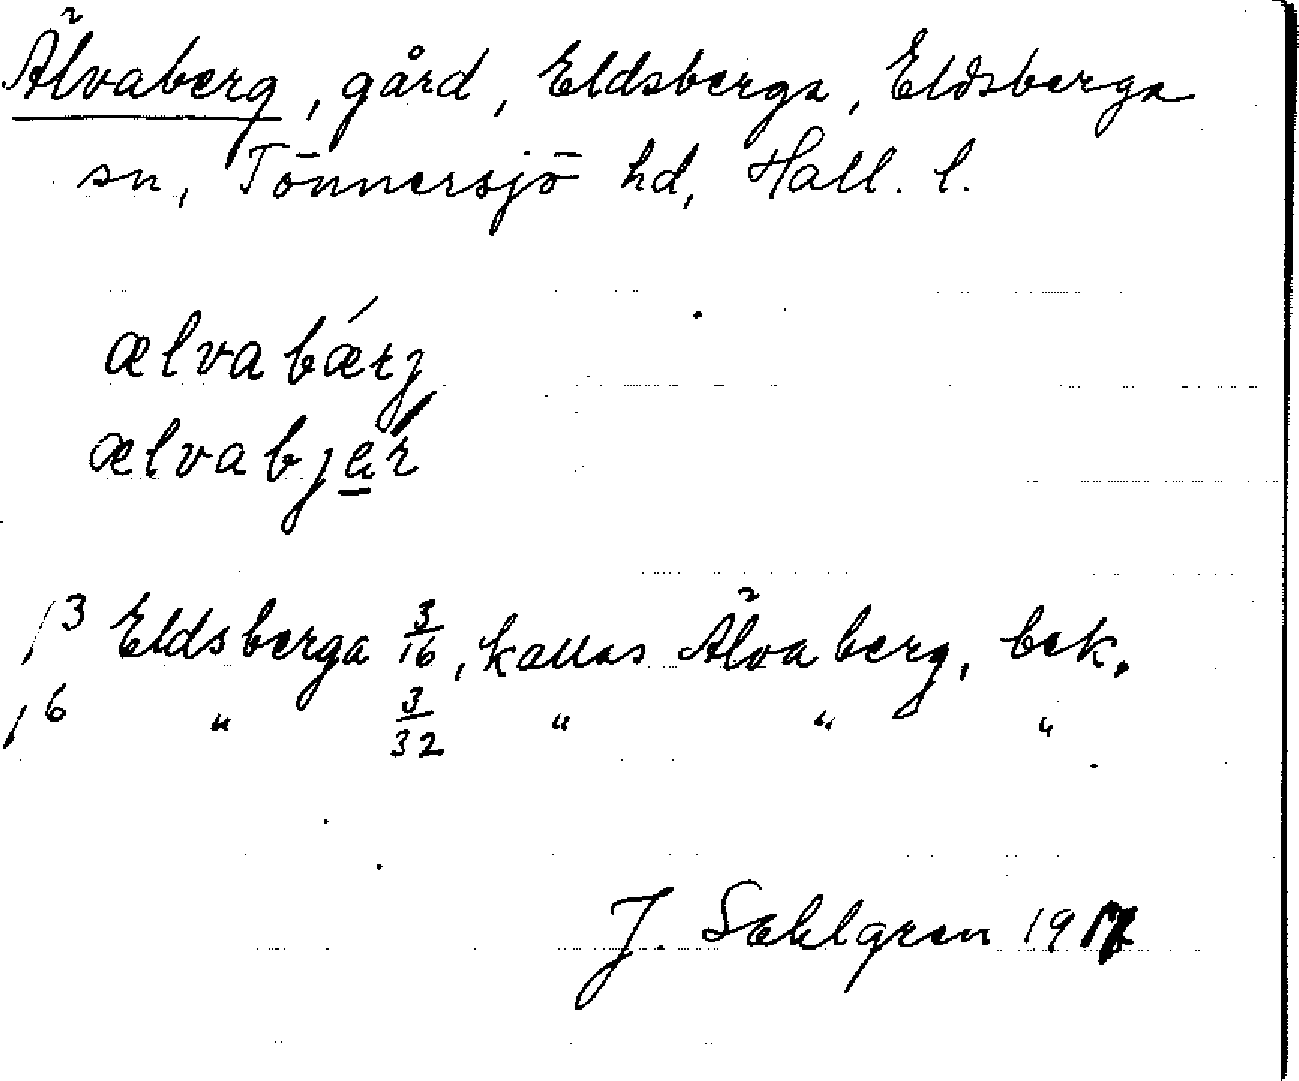 Älvaberg, gård, Eldsberga, Eldsberga
sn, Tönnersjö hd, Hall. l.
ælvabǽrj
ælvabjær
1 3 Eldsberga 3/16, kallas Älvaberg, bek.
1 6 " 3/32 " " "
J. Sahlgren 1917